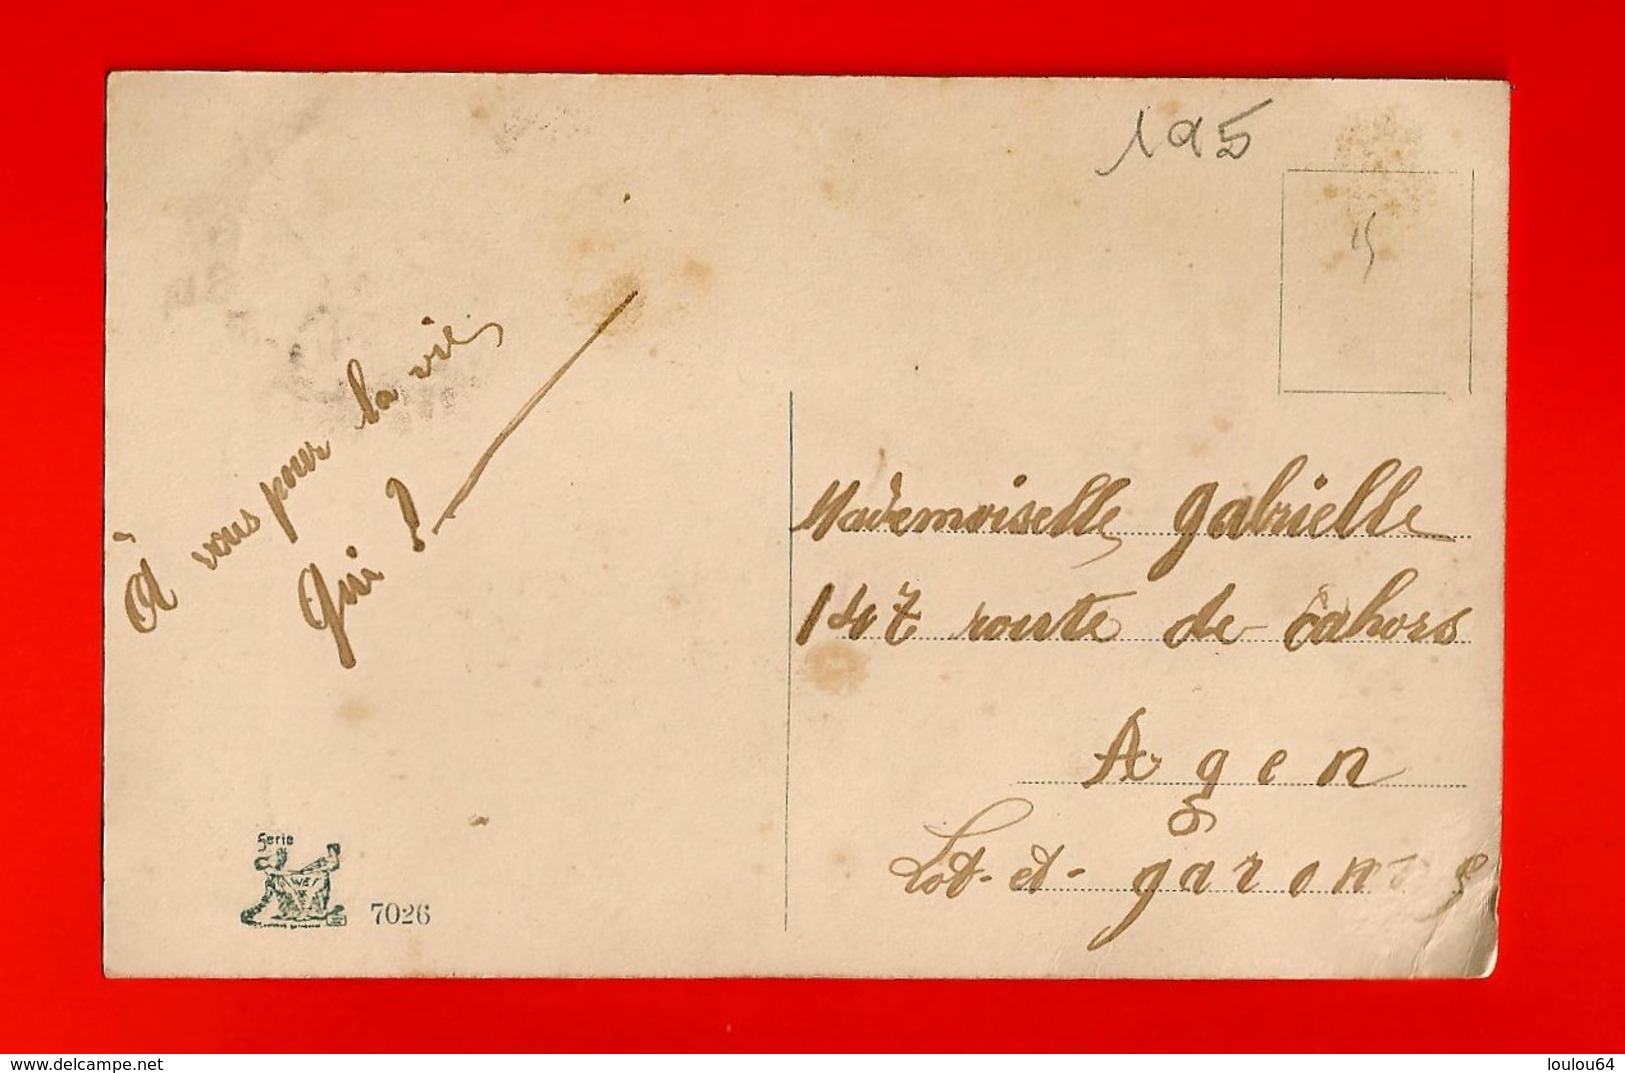 195
À vous pour la vie,
Qui ?
Mademoiselle Gabrielle
147 route de Cahors
Agen
Lot-et-garonne
Serie
7026
www.delcampe.net
loulou64